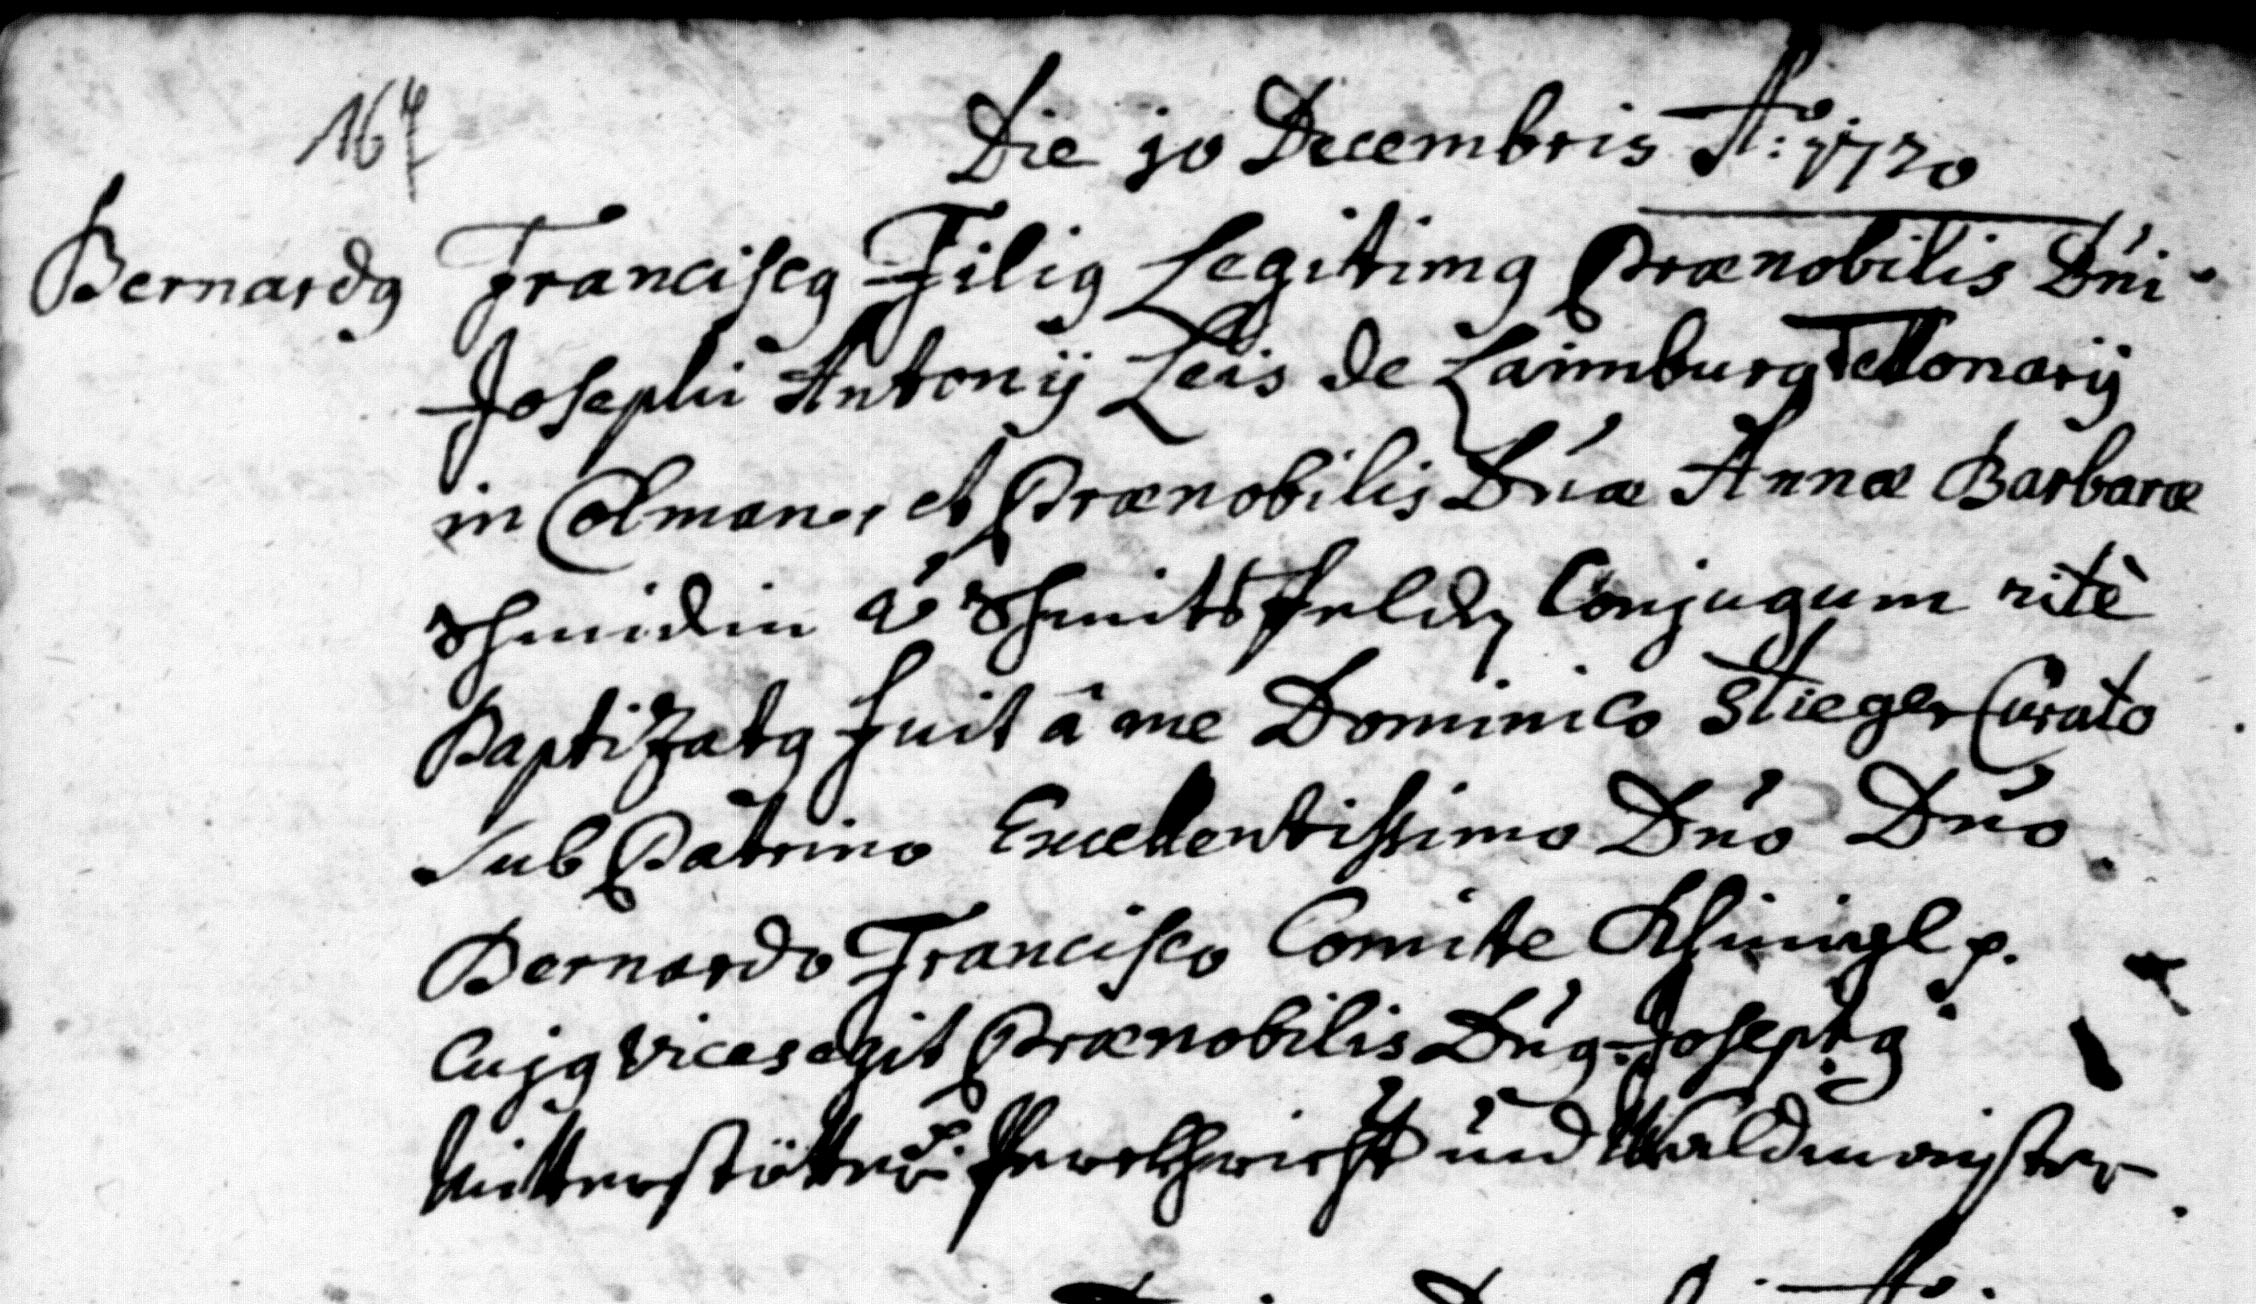 167
Die jo Decembris Ao: 1720
Bernardg Franciscg Filig Legitimg Prænobilis Dni
Josephi Antonij Leis de Laimburg Tellonarij
in Colman, et Prænobilis Dnæ Annæ Barbaræ
Schmidin v. Schmittsfeldt, Conjugum ritè
Baptizatg fuit â me Dominico Stieger Curato
sub Patrino Excellentissimo Dno Dno
Bernardo Francisco Comite Khinigl p.
Cujg vices egit Prænobilis Dng Josephg
Mitterstötter und Waldmaister